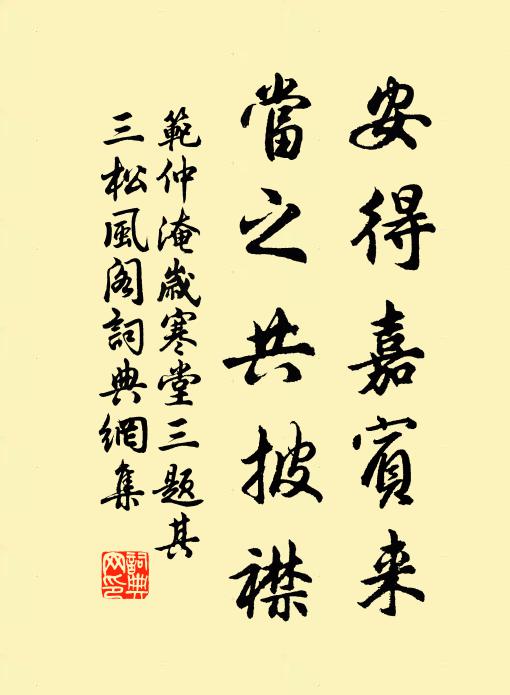 安得嘉賓来
當之共披襟
範仲淹歲寒堂三題其
三松風阁詞典網集
詞典
网印